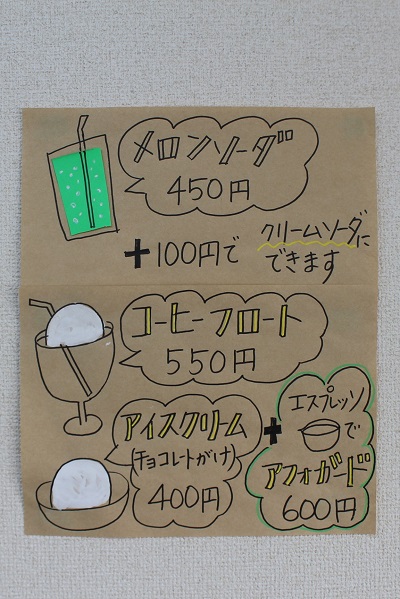 メロンソーダ
450円
+100円で クリームソーダに
できます
コーヒーフロート
550円
アイスクリーム
(チョコレートがけ)
400円
+
エスプレッソ
で
アフォガード
600円